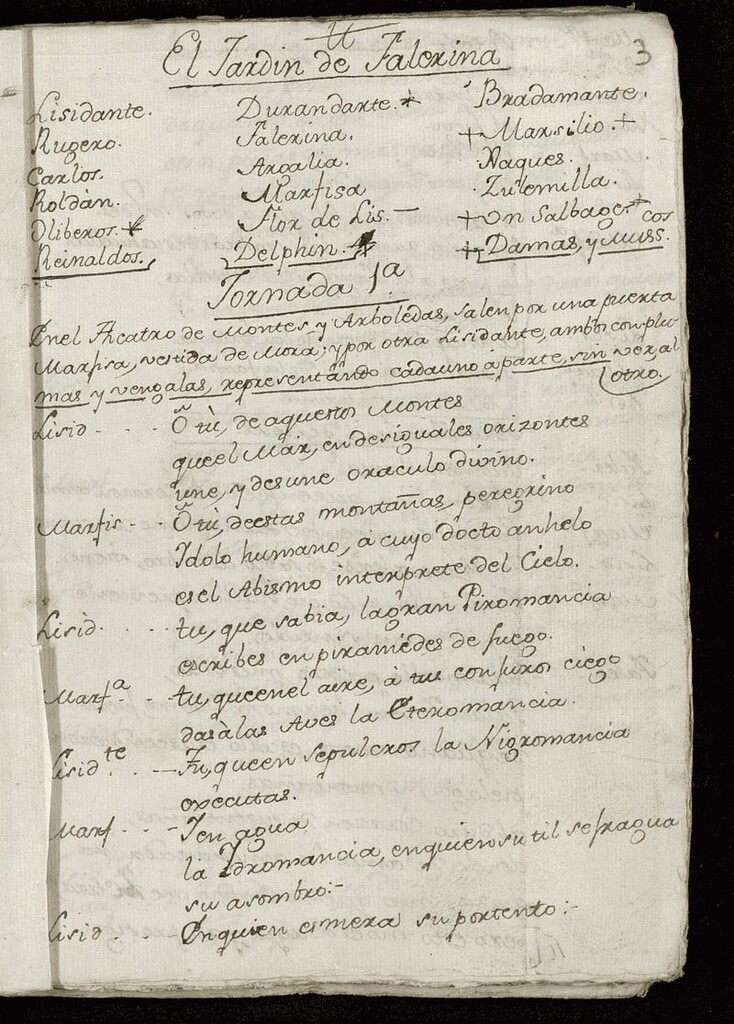 3
El Jardin de Falerina
Lisidante. Durandarte. Bradamante.
Rugero. Falerina. + Marsilio. +
Carlos. Argalia. Naques.
Roldàn. Marfisa Zulemilla.
Oliberos. Flor de Lis. — + Un Salbage. +
Reinaldos. Delphin. + Damas, y Musscos.
Jornada 1a
Enel Theatro de Montes, y Arboledas, salen por una puerta
Marfisa, vestida de Mora; y por otra Lisidante, ambos con plu-
mas y vengalas, representando cadauno à parte, sin ver al
otro.
Lisid - - - O tù, de aquestos Montes
que el Mar, en desiguales orizontes
une, y desune oraculo divino.
Marfis - - O tù, de estas montañas, peregrino
Idolo humano, à cuyo docto anhelo
es el Abismo interprete del Cielo.
Lisid. - - - tu, que sabia, la gran Piromancia
escribes en piramedes de fuego.
Marfa - - tu, que enel aire, à tu conjuro ciego
das à las Aves la Eteromancia.
Lisidte. - - Tu, que en sepulcros la Nigromancia
executas.
Marf - - - Y en agua
la Ydromancia, en quien sutil se fragua
su asombro:-
Lisid - - - En quien esmera su portento:-